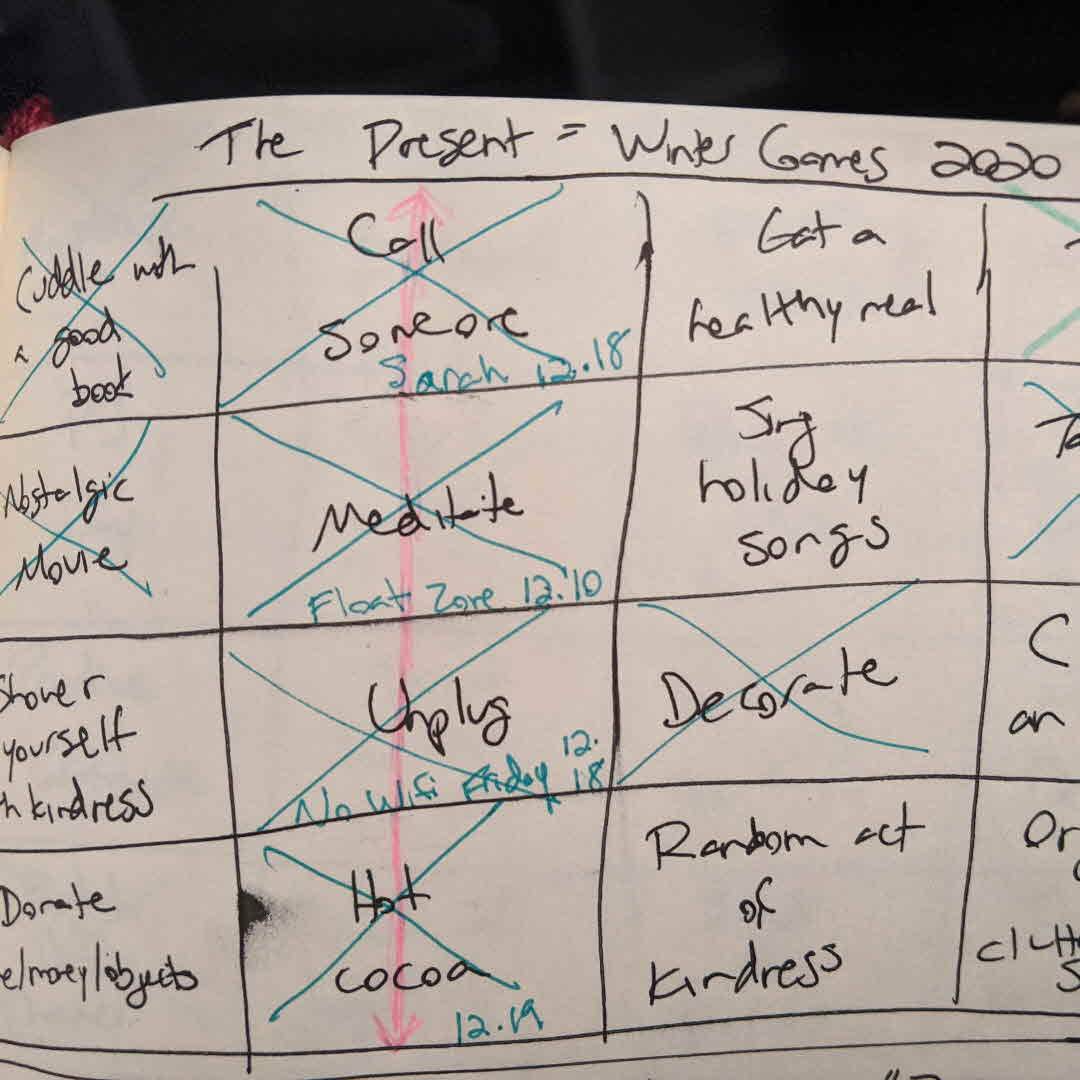 The Present = Winter Games 2020
Cuddle with
a good
book
Call
Someone
Sarah 12.18
Eat a
healthy meal
Nostalgic
Movie
Meditate
Float Zone 12.10
Sing
holiday
songs
Shower
yourself
kindness
Unplug
No Wifi Friday 12.
18
Decorate
C
an
Donate
/money/objects
Hot
cocoa
12.19
Random act
of
kindness
Or
clutt
S